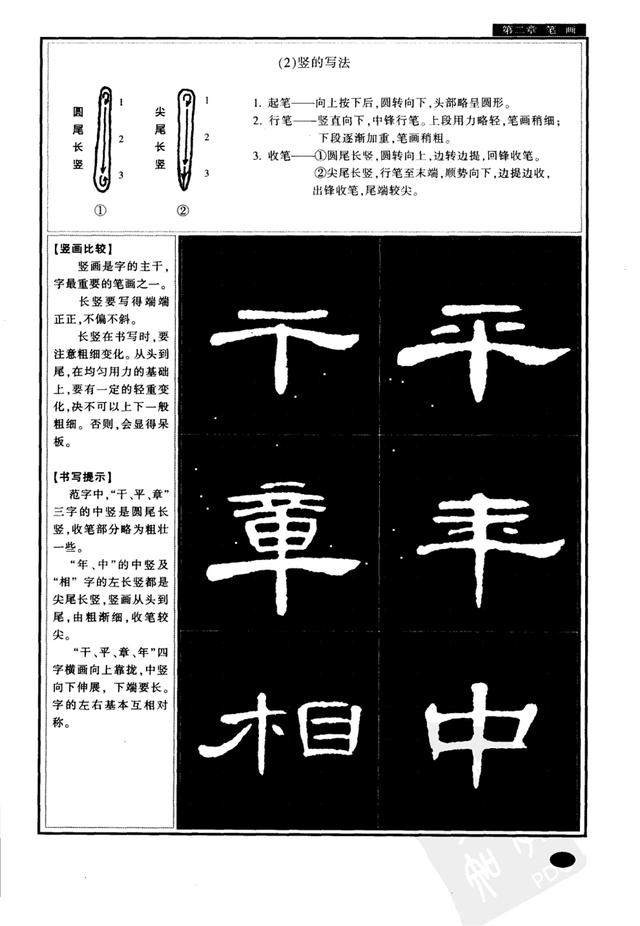 第二章 笔 画
(2)竖的写法
圆尾长竖
1
2
3
①
尖尾长竖
1
2
3
②
1. 起笔——向上按下后,圆转向下,头部略呈圆形。
2. 行笔——竖直向下,中锋行笔。上段用力略轻,笔画稍细;
下段逐渐加重,笔画稍粗。
3. 收笔——①圆尾长竖,圆转向上,边转边提,回锋收笔。
②尖尾长竖,行笔至末端,顺势向下,边提边收,
出锋收笔,尾端较尖。
【竖画比较】
竖画是字的主干,
字最重要的笔画之一。
长竖要写得端端
正正,不偏不斜。
长竖在书写时,要
注意粗细变化。从头到
尾,在均匀用力的基础
上,要有一定的轻重变
化,决不可以上下一般
粗细。否则,会显得呆
板。
【书写提示】
范字中,“干、平、章”
三字的中竖是圆尾长
竖,收笔部分略为粗壮
一些。
“年、中”的中竖及
“相”字的左长竖都是
尖尾长竖,竖画从头到
尾,由粗渐细,收笔较
尖。
“干、平、章、年”四
字横画向上靠拢,中竖
向下伸展,下端要长。
字的左右基本互相对
称。
干 平
章 年
相 中